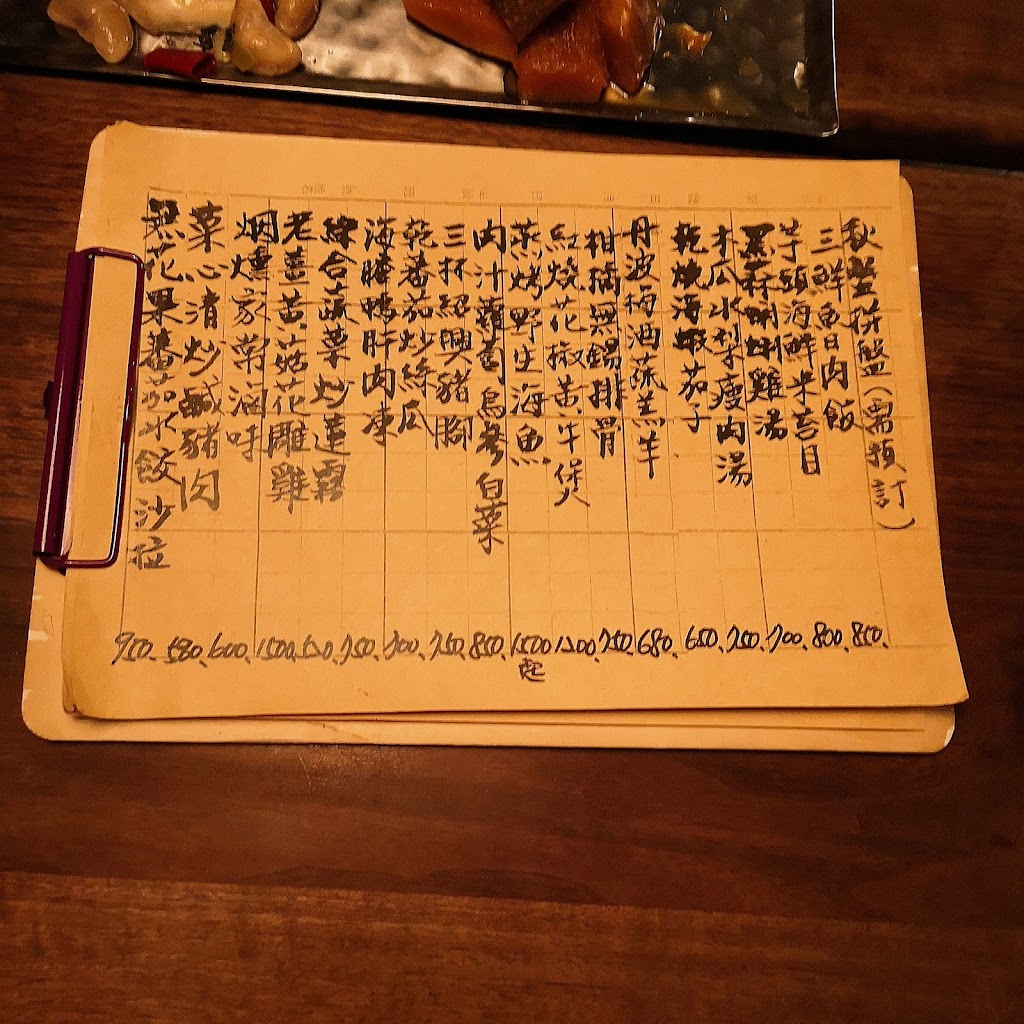 秋蟹拼盤(需預訂)
三鮮魚肉飯 850.
芋頭海鮮米苔目 800.
黑蒜蜊雞湯 700.
木瓜水梨瘦肉湯 750.
乾燒海蝦茄子 650.
丹波梅酒蔬羔羊 680.
柑橘無錫排骨 750.
紅燒花椒黃牛煲 1200.
蒸烤野生海魚 1500起
肉汁蘿蔔烏參白菜 850.
三杯紹興豬腳 750.
乾蕃茄炒絲瓜 700.
醃鴨肝肉凍 750.
綜合蔬菜炒蓮霧
老薑黃菇花雕雞 1500.
烟燻家常滷味 600.
菜心清炒鹹豬肉 580.
無花果蕃茄水餃沙拉 950.